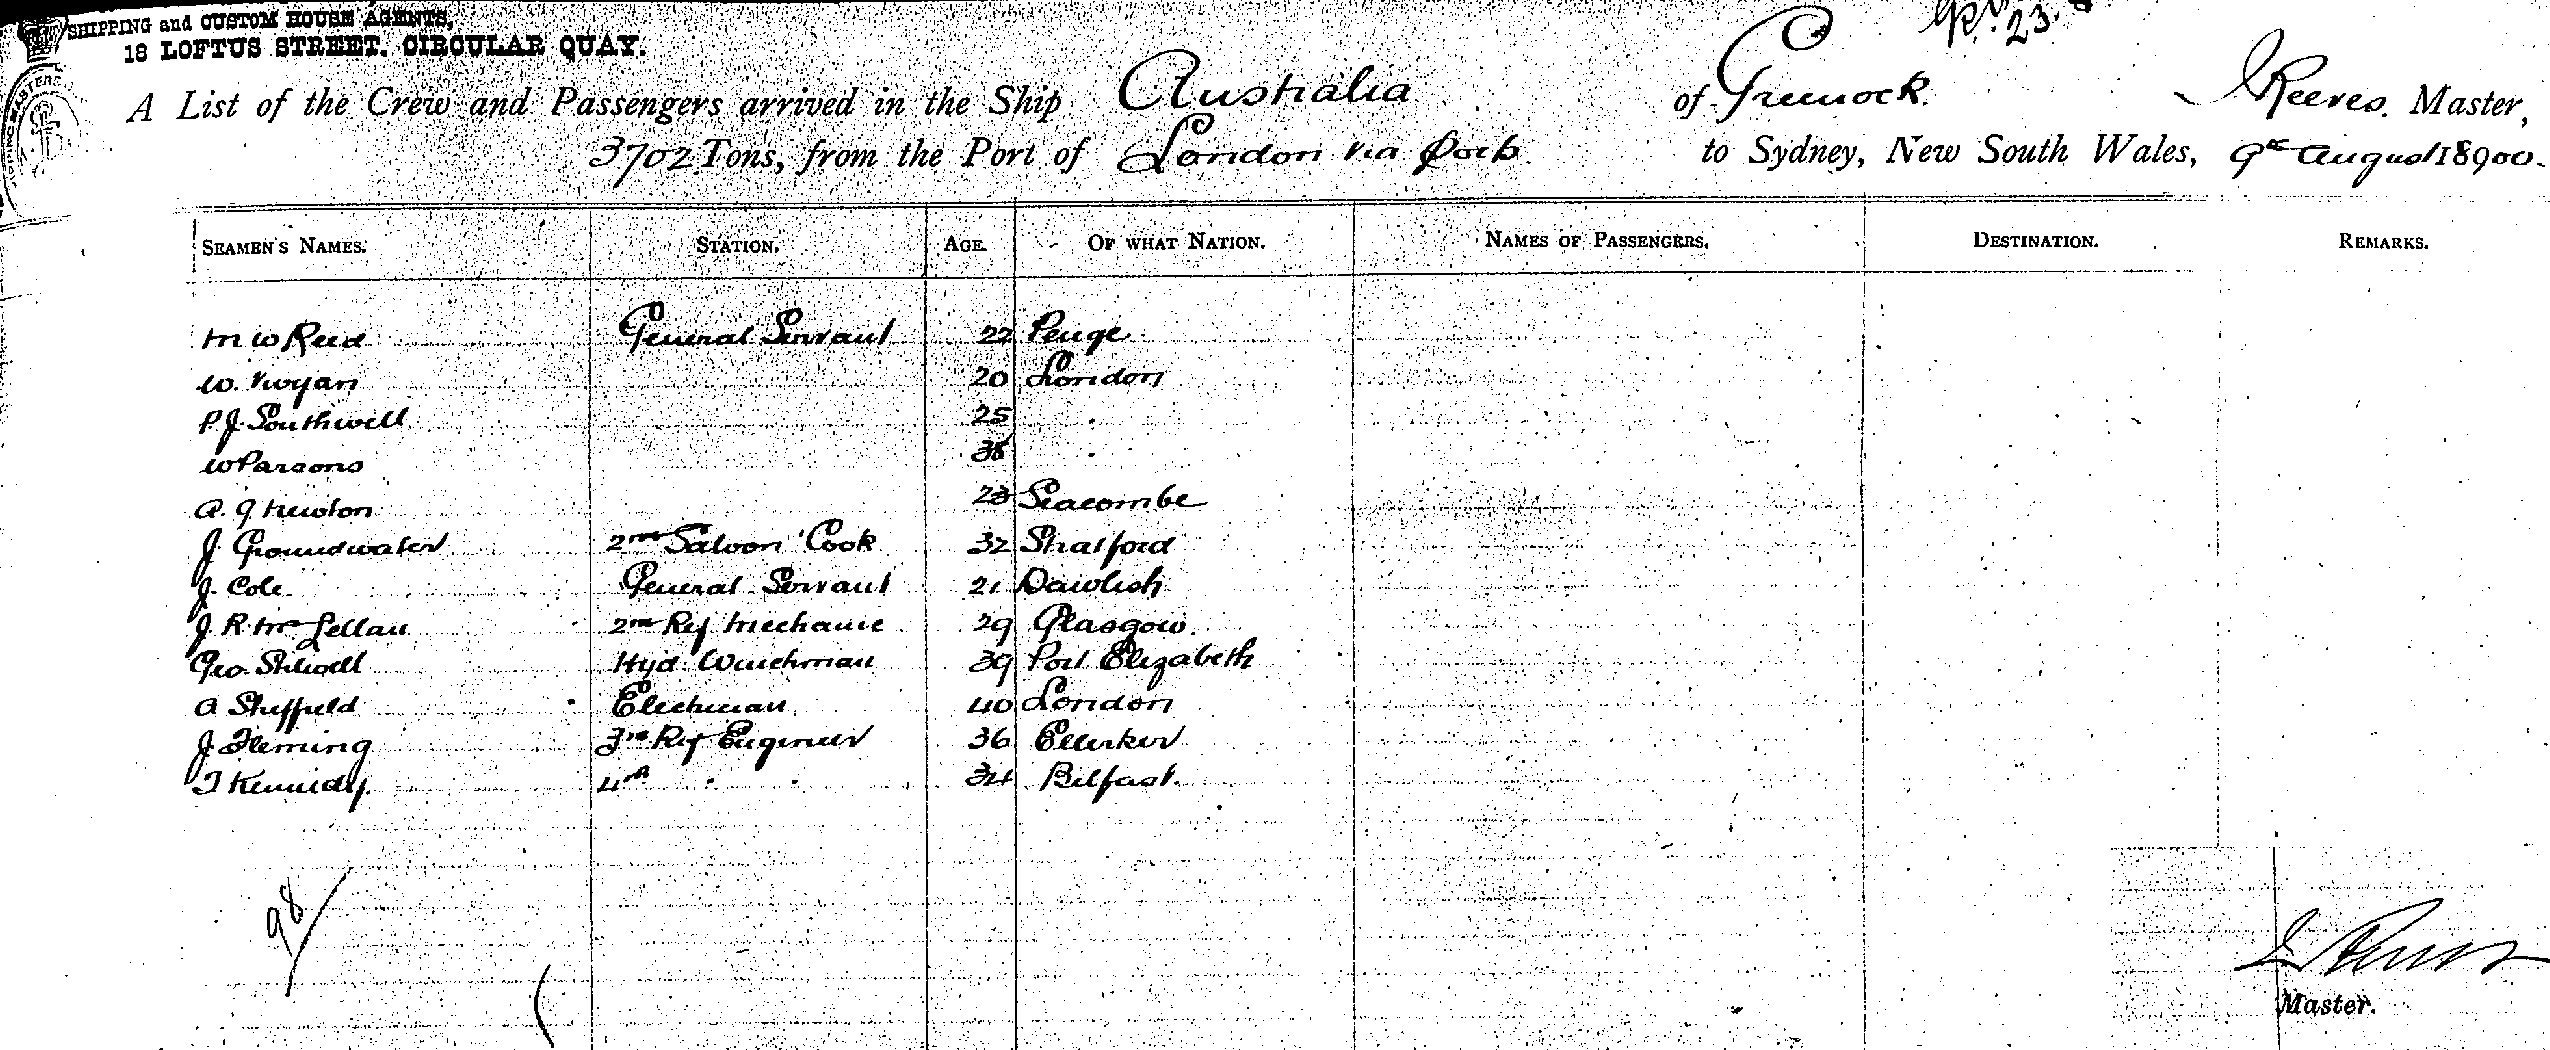 SHIPPING and CUSTOM HOUSE AGENTS,
18 LOFTUS STREET. CIRCULAR QUAY.
23.
A List of the Crew and Passengers arrived in the Ship Australia of Greenock. Reeves. Master,
3702 Tons, from the Port of London via to Sydney, New South Wales, 9th August 18900.
SEAMEN'S NAMES. STATION. AGE. OF WHAT NATION. NAMES OF PASSENGERS. DESTINATION. REMARKS.
M W Reed General Servant 22 Penge
W. 20 London
P J Southwell 25 "
W Parsons "
A. J Newton Seacombe
J. Groundwater 2nd Saloon Cook 32 Stratford
J. Cole General Servant 21 Dawlish
J. R McLellan 2nd Ref Mechanic 29 Glasgow.
Geo. Stilwell Hyd Winchman 39 Port Elizabeth
A Sheffield Electrician 40 London
J. Fleming 3rd Ref Engineer 36 Ellerker
T Kennedy. 4th " " 34 Belfast.
98/
Master.